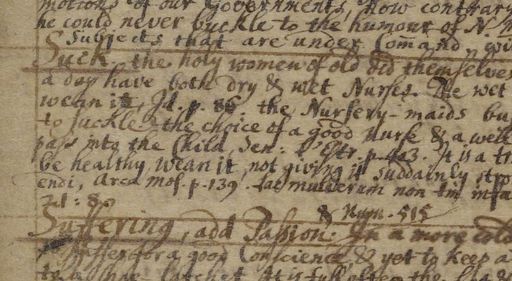 motions of our Governments, how contrary
he could never buckle to the humour of N
Subjects that are under Comand
Suck, the holy women of old did themselves
a day have both dry & wet Nurses. The wet
wean it, Id. p. 86 the Nursery-maids bu
to suckle the choice of a good Nurse & a well
pass into the Child, Sen: p. 443. It is a tr
be healthy wean it, not giving it suddainly stro
endi, Area mos. p. 139. Lac mulierum non tim infa
Id: 80
& Num. 515
Suffering, add Passion. In a more cold
Suffer for a good Conscience & yet to keep a
to a shoe-latchet. It is full often the